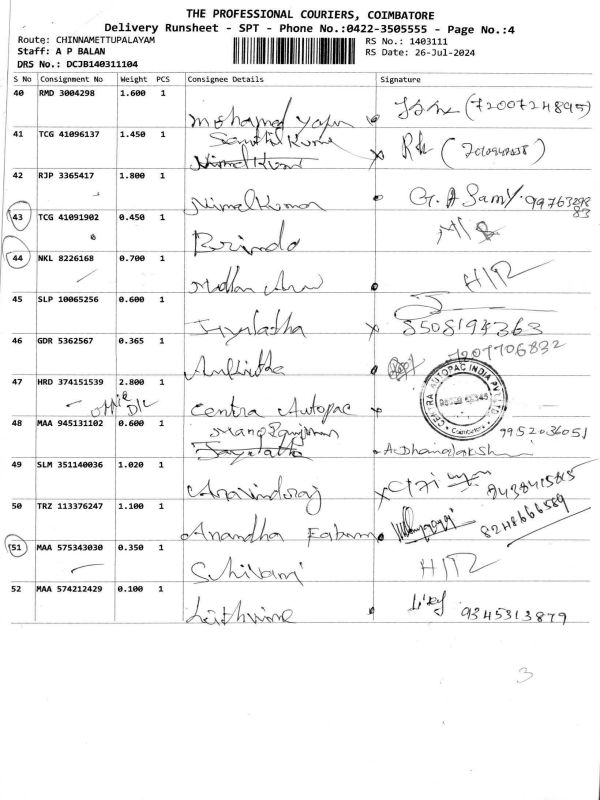 THE PROFESSIONAL COURIERS, COIMBATORE
Delivery Runsheet - SPT - Phone No.:0422-3505555 - Page No.:4
Route: CHINNAMETTUPALAYAM
Staff: A P BALAN
DRS No.: DCJB140311104
RS No.: 1403111
RS Date: 26-Jul-2024
S No Consignment No Weight PCS Consignee Details Signature
40 RMD 3004298 1.600 1
Mohamed (7200724895)
41 TCG 41096137 1.450 1
Senthil Kumar
Nimal Kumar
42 RJP 3365417 1.800 1
Nimal Kumar G. A Samy.
43 TCG 41091902 0.450 1
Brinda
44 NKL 8226168 0.700 1
Madhan H/R
45 SLP 10065256 0.600 1
Jayalatha 8508194363
46 GDR 5362567 0.365 1
7207706832
47 HRD 374151539 2.800 1
office D/L
Centra Autopac
CENTRA AUTOPAC INDIA PVT LTD
Coimbatore
48 MAA 945131102 0.600 1 9952036051
Jayalatha A. Dhanalakshmi
49 SLM 351140036 1.020 1
Aravindraj 9438415815
50 TRZ 113376247 1.100 1
Anandha 8248666589
51 MAA 575343030 0.350 1
Shivani H/R
52 MAA 574212429 0.100 1
9345313879
3